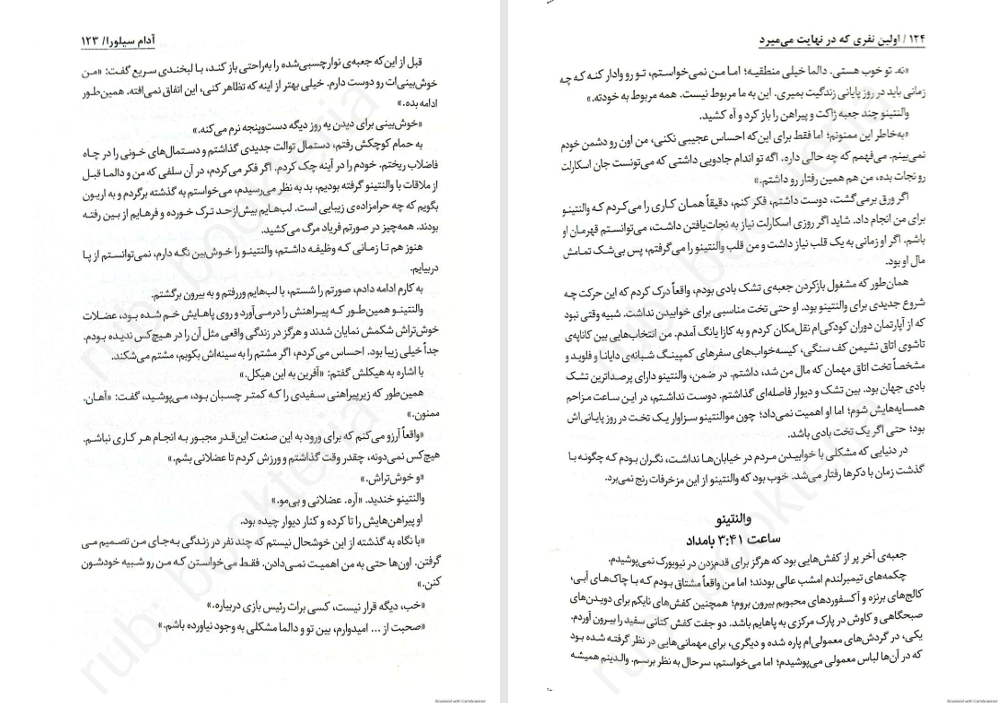 آدام سیلورا/ ۱۲۳
قبل از این‌که جعبه‌ی نوارچسبی‌شده را به‌راحتی باز کند، با لبخندی سریع گفت: «من
خوش‌بینی‌ات رو دوست دارم. خیلی بهتر از اینه که تظاهر کنی، این اتفاق نمی‌افته. همین‌طور
ادامه بده.»
«خوش‌بینی برای دیدن یه روز دیگه دست‌وپنجه نرم می‌کنه.»
به حمام کوچکش رفتم، دستمال توالت جدیدی گذاشتم و دستمال‌های خونی را در چاه
فاضلاب ریختم. خودم را در آینه چک کردم. اگر فکر می‌کردم، در آن سلفی که من و دالما قبل
از ملاقات با والنتینو گرفته بودیم، بد به نظر می‌رسیدم، می‌خواستم به گذشته برگردم و به اریون
بگویم که چه حرامزاده‌ی زیبایی است. لب‌هایم بیش‌ازحد ترک خورده و فرهایم از بین رفته
بودند. همه‌چیز در صورتم فریاد مرگ می‌کشید.
هنوز هم تا زمانی که وظیفه داشتم، والنتینو را خوش‌بین نگه دارم، نمی‌توانستم از پا
دربیایم.
به کارم ادامه دادم، صورتم را شستم، با لب‌هایم وررفتم و به بیرون برگشتم.
والنتینو همین‌طور که پیراهنش را درمی‌آورد و روی پاهایش خم شده بود، عضلات
خوش‌تراش شکمش نمایان شدند و هرگز در زندگی واقعی مثل آن را در هیچ‌کس ندیده بودم.
جداً خیلی زیبا بود. احساس می‌کردم، اگر مشتم را به سینه‌اش بکوبم، مشتم می‌شکند.
با اشاره به هیکلش گفتم: «آفرین به این هیکل.»
همین‌طور که زیرپیراهنی سفیدی را که کمتر چسبان بود، می‌پوشید، گفت: «آهان.
ممنون.»
«واقعاً آرزو می‌کنم که برای ورود به این صنعت این‌قدر مجبور به انجام هر کاری نباشم.
هیچ‌کس نمی‌دونه، چقدر وقت گذاشتم و ورزش کردم تا عضلانی بشم.»
«و خوش‌تراش.»
والنتینو خندید. «آره. عضلانی و بی‌مو.»
او پیراهن‌هایش را تا کرده و کنار دیوار چیده بود.
«با نگاه به گذشته از این خوشحال نیستم که چند نفر در زندگی به‌جای من تصمیم می
گرفتن. اون‌ها حتی به من اهمیت نمی‌دادن. فقط می‌خواستن که من رو شبیه خودشون
کنن.»
«خب، دیگه قرار نیست، کسی برات رئیس بازی دربیاره.»
«صحبت از ... امیدوارم، بین تو و دالما مشکلی به وجود نیاورده باشم.»
۱۲۴/ اولین نفری که در نهایت می‌میرد
«نه. تو خوب هستی. دالما خیلی منطقیه؛ اما من نمی‌خواستم، تو رو وادار کنه که چه
زمانی باید در روز پایانی زندگیت بمیری. این به ما مربوط نیست. همه مربوط به خودته.»
والنتینو چند جعبه ژاکت و پیراهن را باز کرد و آه کشید.
«به‌خاطر این ممنونم؛ اما فقط برای این‌که احساس عجیبی نکنی، من اون رو دشمن خودم
نمی‌بینم. می‌فهمم که چه حالی داره. اگه تو اندام جادویی داشتی که می‌تونست جان اسکارلت
رو نجات بده، من هم همین رفتار رو داشتم.»
اگر ورق برمی‌گشت، دوست داشتم، فکر کنم، دقیقاً همان کاری را می‌کردم که والنتینو
برای من انجام داد. شاید اگر روزی اسکارلت نیاز به نجات‌یافتن داشت، می‌توانستم قهرمان او
باشم. اگر او زمانی به یک قلب نیاز داشت و من قلب والنتینو را می‌گرفتم، پس بی‌شک تمامش
مال او بود.
همان‌طور که مشغول بازکردن جعبه‌ی تشک بادی بودم، واقعاً درک کردم که این حرکت چه
شروع جدیدی برای والنتینو بود. او حتی تخت مناسبی برای خوابیدن نداشت. شبیه وقتی نبود
که از آپارتمان دوران کودکی‌ام نقل‌مکان کردم و به کازا یانگ آمدم. من انتخاب‌هایی بین کاناپه‌ی
تاشوی اتاق نشیمن کف سنگی، کیسه‌خواب‌های سفرهای کمپینگ شبانه‌ی دایانا و فلوید و
مشخصاً تخت اتاق مهمان که مال من شد، داشتم. در ضمن، والنتینو دارای پرصداترین تشک
بادی جهان بود. بین تشک و دیوار فاصله‌ای گذاشتم. دوست نداشتم، در این ساعت مزاحم
همسایه‌هایش شوم؛ اما او اهمیت نمی‌داد؛ چون موالنتینو سزاوار یک تخت در روز پایانی‌اش
بود؛ حتی اگر یک تخت بادی باشد.
در دنیایی که مشکلی با خوابیدن مردم در خیابان‌ها نداشت، نگران بودم که چگونه با
گذشت زمان با دکرها رفتار می‌شد. خوب بود که والنتینو از این مزخرفات رنج نمی‌برد.
والنتینو
ساعت ۳:۴۱ بامداد
جعبه‌ی آخر پر از کفش‌هایی بود که هرگز برای قدم‌زدن در نیویورک نمی‌پوشیدم.
چکمه‌های تیمبرلندم امشب عالی بودند؛ اما من واقعاً مشتاق بودم که با چاک‌های آبی،
کالج‌های برنزه و آکسفوردهای محبوبم بیرون بروم؛ همچنین کفش‌های نایکم برای دویدن‌های
صبحگاهی و کاوش در پارک مرکزی به پاهایم باشد. دو جفت کفش کتانی سفید را بیرون آوردم.
یکی، در گردش‌های معمولی‌ام پاره شده و دیگری، برای مهمانی‌هایی در نظر گرفته شده بود
که در آن‌ها لباس معمولی می‌پوشیدم؛ اما می‌خواستم، سرحال به نظر برسم. والدینم همیشه